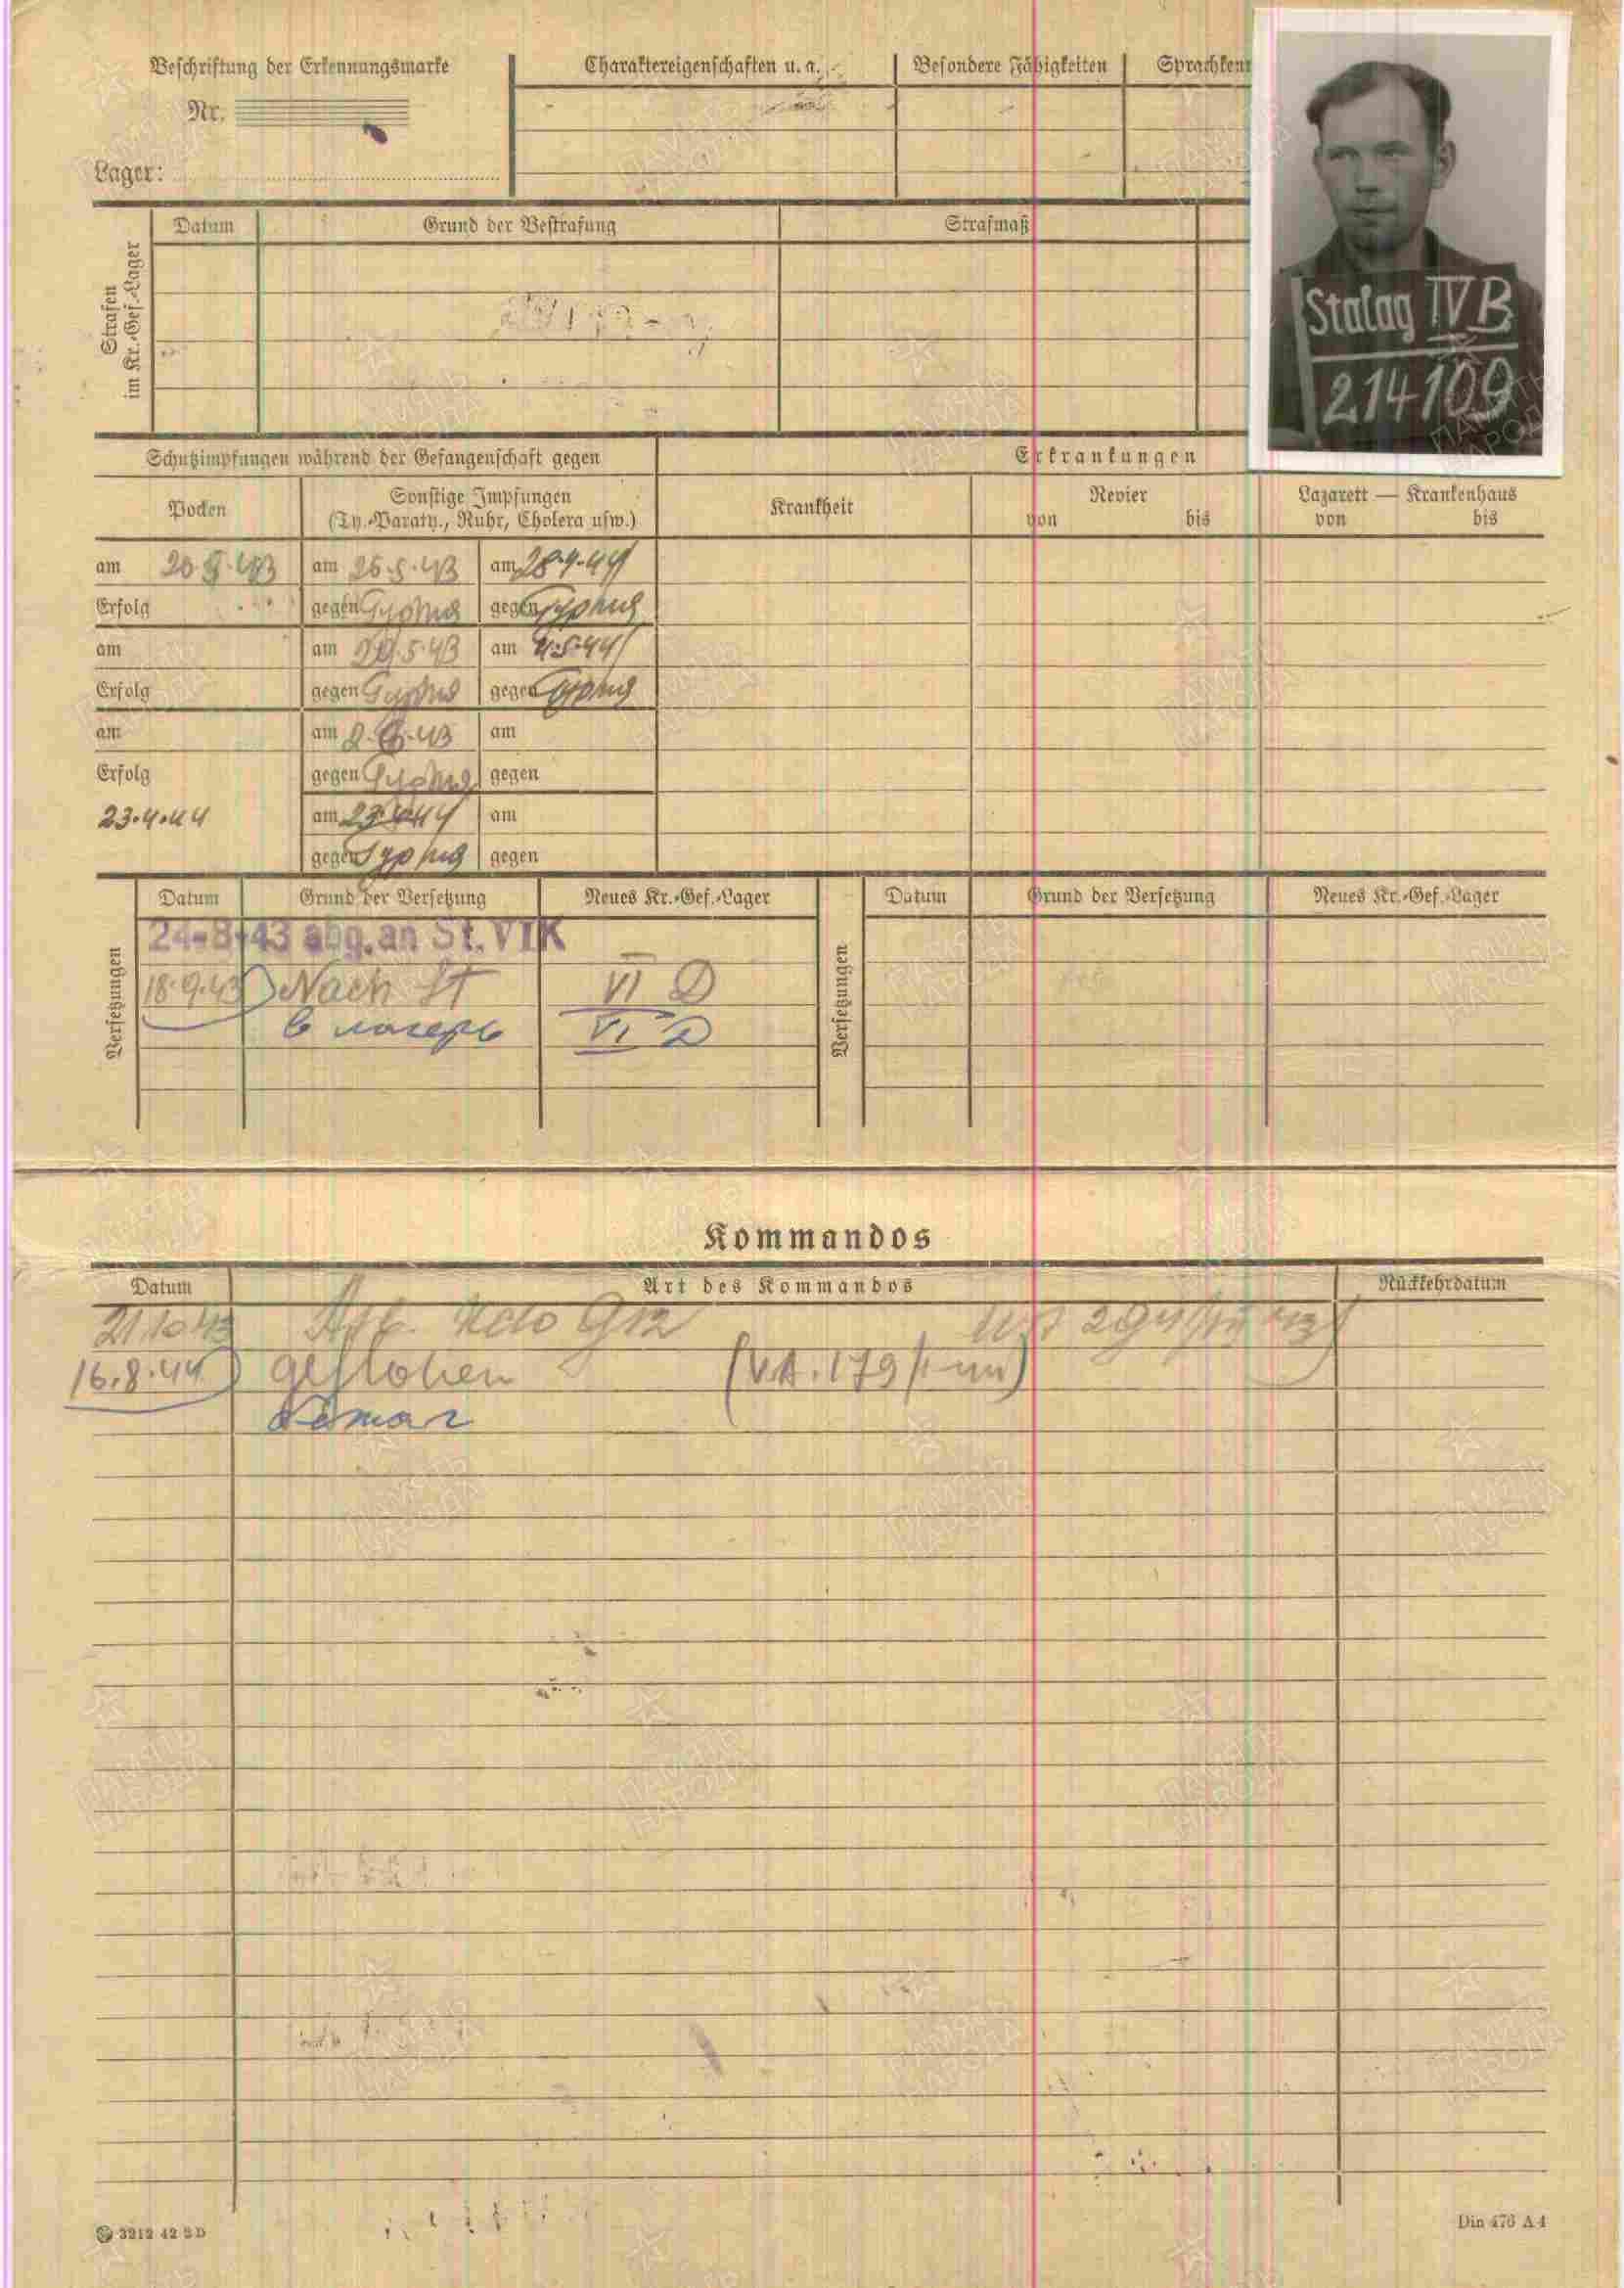 Beschriftung der Erkennungsmarke
Nr.
Lager:
Charaktereigenschaften u. a.
Besondere Fähigkeiten
Stalag IV B
214109
Strafen im Kr.-Gef.-Lager
Datum
Grund der Bestrafung
Strafmaß
Schutzimpfungen während der Gefangenschaft gegen
Erkrankungen
Pocken
Sonstige Impfungen
(Ty.-Paraty., Ruhr, Cholera usw.)
Krankheit
Revier
von bis
Lazarett — Krankenhaus
von bis
am am 26.5.43 am 28.4.44
Erfolg gegen Typhus gegen Typhus
am am 5.43 am 4.5.44
Erfolg gegen Typhus gegen Typhus
am am 2.6.43 am
Erfolg gegen Typhus gegen
23.4.44 am am
gegen Typhus gegen
Versetzungen
Datum Grund der Versetzung Neues Kr.-Gef.-Lager
24-8-43 abg. an St. VI K
18.9.43 Nach St VI D
в лагерь VI D
Versetzungen
Datum Grund der Versetzung Neues Kr.-Gef.-Lager
Kommandos
Datum Art des Kommandos Rückkehrdatum
21.10.43 Arb. Kdo 912
16.8.44 geflohen
бежал
3212 42 2 D
Din 476 A 4